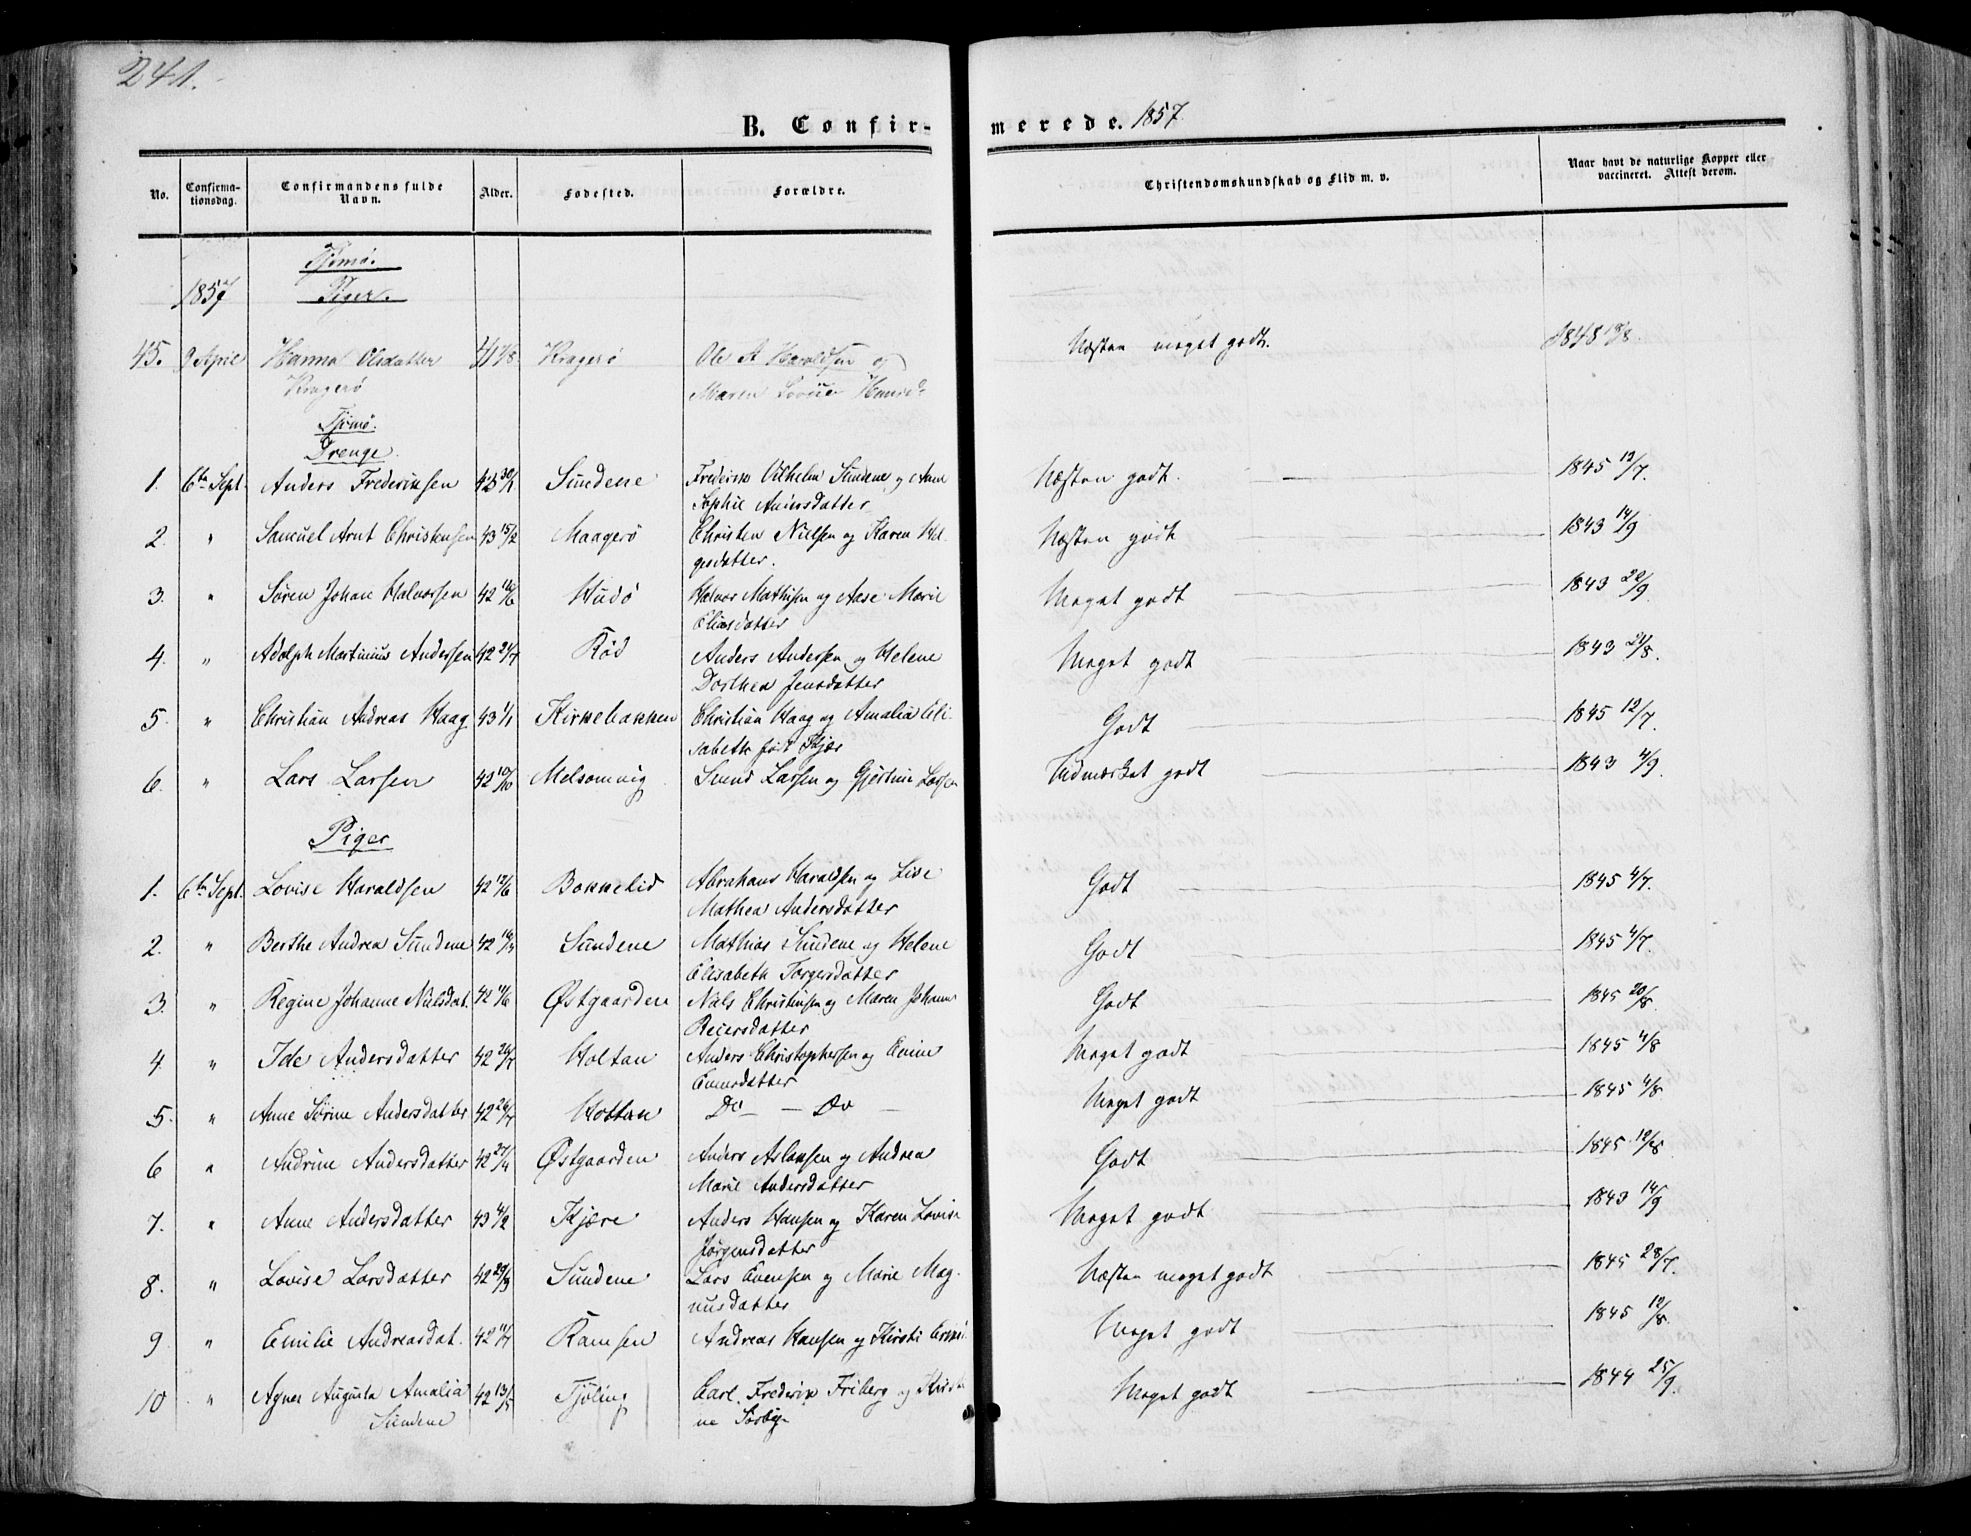 241.
B. Confir-
merede. 1857
No. Confirma-tionsdag. Confirmandens fulde Navn. Alder. Fødested. Forældre. Christendomskundskab og Flid m. v. Naar havt de naturlige Kopper eller vaccineret. Attest derom.
Tjømø.
1857 Piger.
45. 9 April Hanna Olsdatter 41 Kragerø Ole A Haraldsen og Næsten meget godt. 1848
Kragerø Maren Lovise
Tjømø.
Drenge.
1. 6te Sept. Anders Frederiksen Sundene Frederik Vilhelm Sundene og Anne Næsten godt. 1845 12/7.
Sophie Andersdatter
2. " Samuel Arnt Christensen 43 15/2 Maagerø Christen Nielsen og Karen Hel- Næsten godt 1843 14/9
gesdatter.
3. " Søren Johan Halvorsen 42 Hudø Halvor Mathisen og Aase Marie Meget godt 1843 22/9.
Eliasdatter
4. " Adolph Martinius Andersen 42 21/7 Rød Anders Andersen og Helene Meget godt 1843 21/8.
Dorthea Jensdatter
5. " Christian Andreas Haag 43 1/1 Kirkebakken Christian Haag og Amalia Eli- Godt 1845 12/7.
sabeth født Kjær
6. " Lars Larsen 42 10/10 Melsomvig Svend Larsen og Gjertine Larsen Udmærket godt 1843 4/9.
Piger
1. 6te Sept. Lovise Haraldsen 42 12/6 Bokkelid Abraham Haraldsen og Lise Godt 1845 4/7.
Mathea Andersdatter
2. " Berthe Andrea Sundene 42 Sundene Mathias Sundene og Helene Godt 1845 4/7.
Elisabeth Torgersdatter
3. " Regine Johanne Nilsdat. 42 Østgaarden Niels Christensen og Maren Johanne Godt 1845 20/8.
Reiersdatter
4. " Ide Andersdatter 42 26/7 Holtan Anders Christophersen og Meget godt 1845 4/8
Evensdatter
5. " Anne Sørine Andersdatter 42 26/7 Holtan Do — Do — Meget godt 1845 4/8
6 " Andrine Andersdatter 42 27/4 Østgaarden Anders Aslaksen og Andrea Godt 1845 12/8
Marie Andersdatter
7. " Anne Andersdatter 43 4/2 Kjære Anders Hansen og Karen Lovise Meget godt 1843 14/9
Jørgensdatter
8. " Lovise Larsdatter 42 29/9 Sundene Lars Evensen og Marie Mag- Næsten meget godt 1845 28/7.
nusdatter
9 " Emilie Andreasdat. 42 11/7 Ramsen Andreas Hansen og Kirsti Meget godt 1845 12/8.
10 " Agnes Augusta Amalia 42 13/5 Tjøling Carl Frederik Friberg og Kirsti- Meget godt 1844 25/9.
Sundene ne Sørby